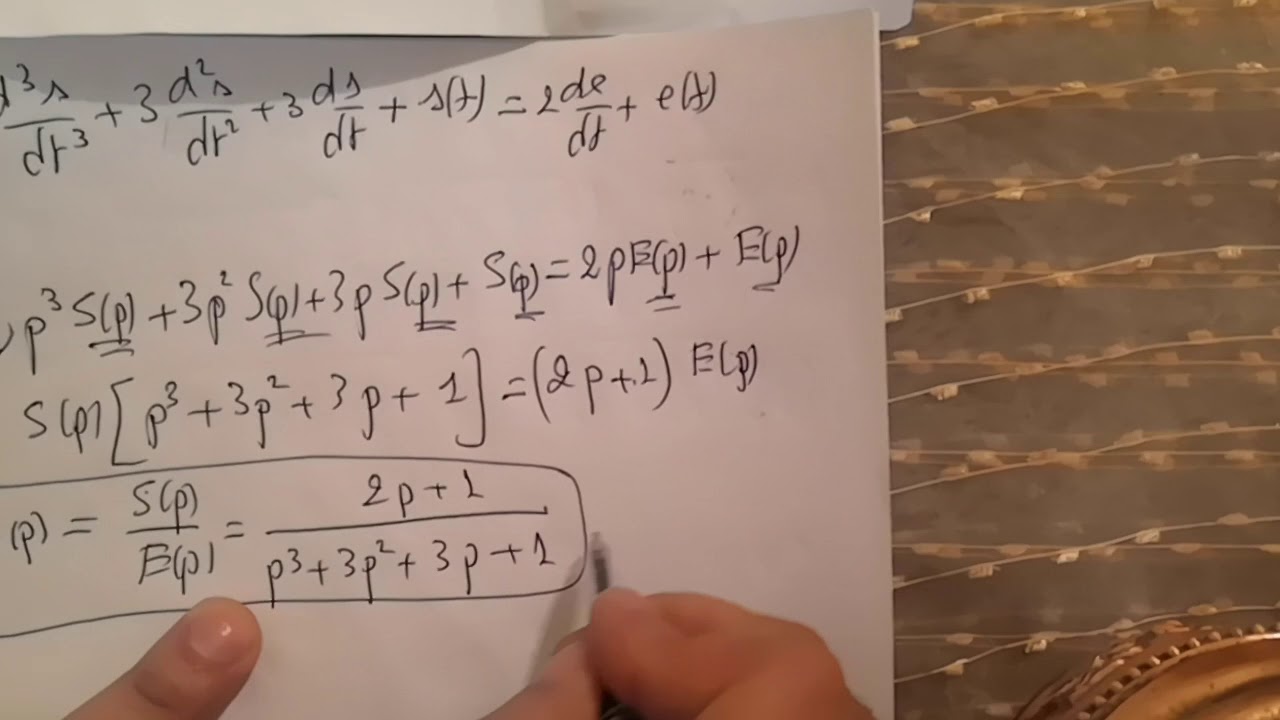 d³s/dt³ + 3 d²s/dt² + 3 ds/dt + s(t) = 2 de/dt + e(t)
p³ S(p) + 3p² S(p) + 3p S(p) + S(p) = 2pE(p) + E(p)
S(p) [p³ + 3p² + 3p + 1] = (2p+1) E(p)
(p) = S(p)/E(p) = 2p+1 / p³+3p²+3p+1